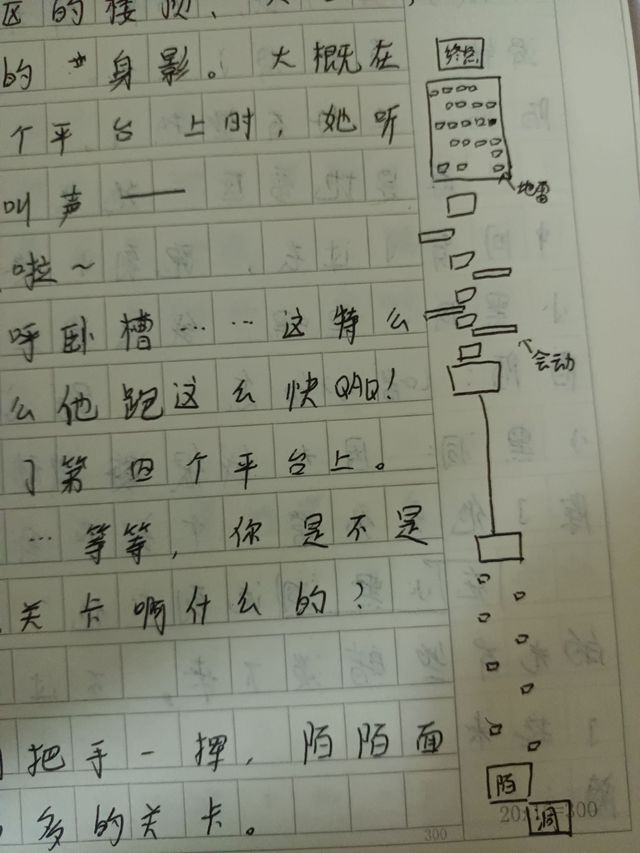 区的楼顶、
的 身影。大概在
个平台上时，她听
叫声——
啦～
呼卧槽……这特么
么他跑这么快QAQ！
了第四个平台上。
…等等，你是不是
关卡啊什么的？
把手一挥，陌陌面
多的关卡。
终点
地雷
会动
陌
洞
300